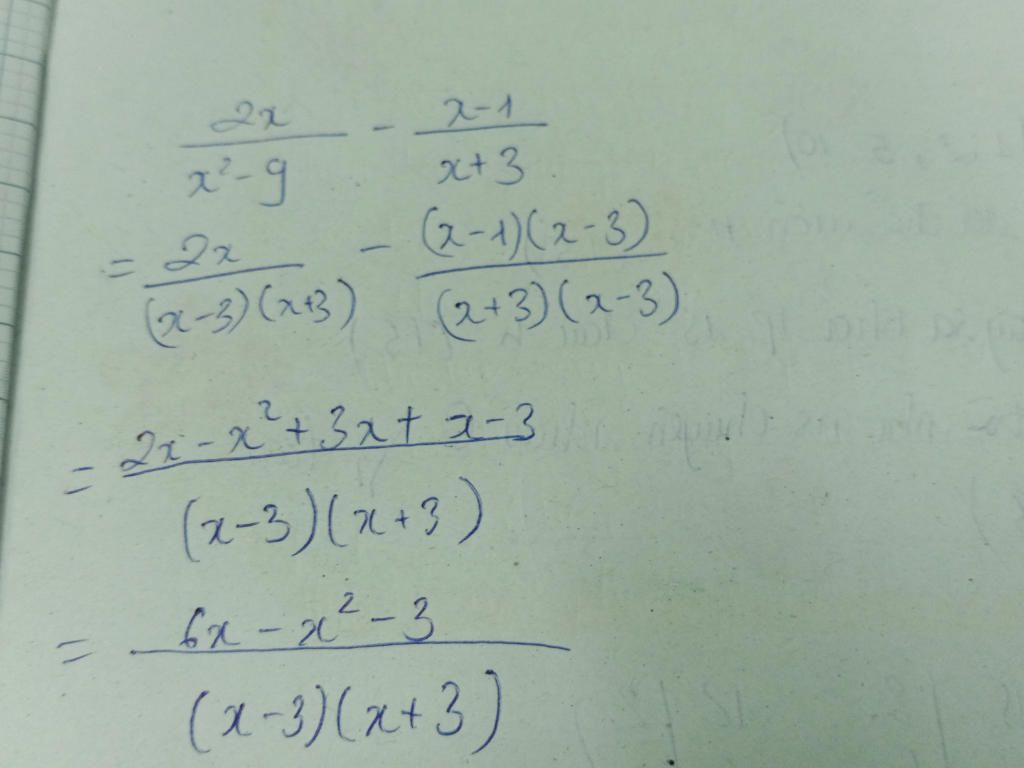 2x/(x²-9) - (x-1)/(x+3)
= 2x/((x-3)(x+3)) - ((x-1)(x-3))/((x+3)(x-3))
= (2x-x²+3x+x-3)/((x-3)(x+3))
= (6x-x²-3)/((x-3)(x+3))